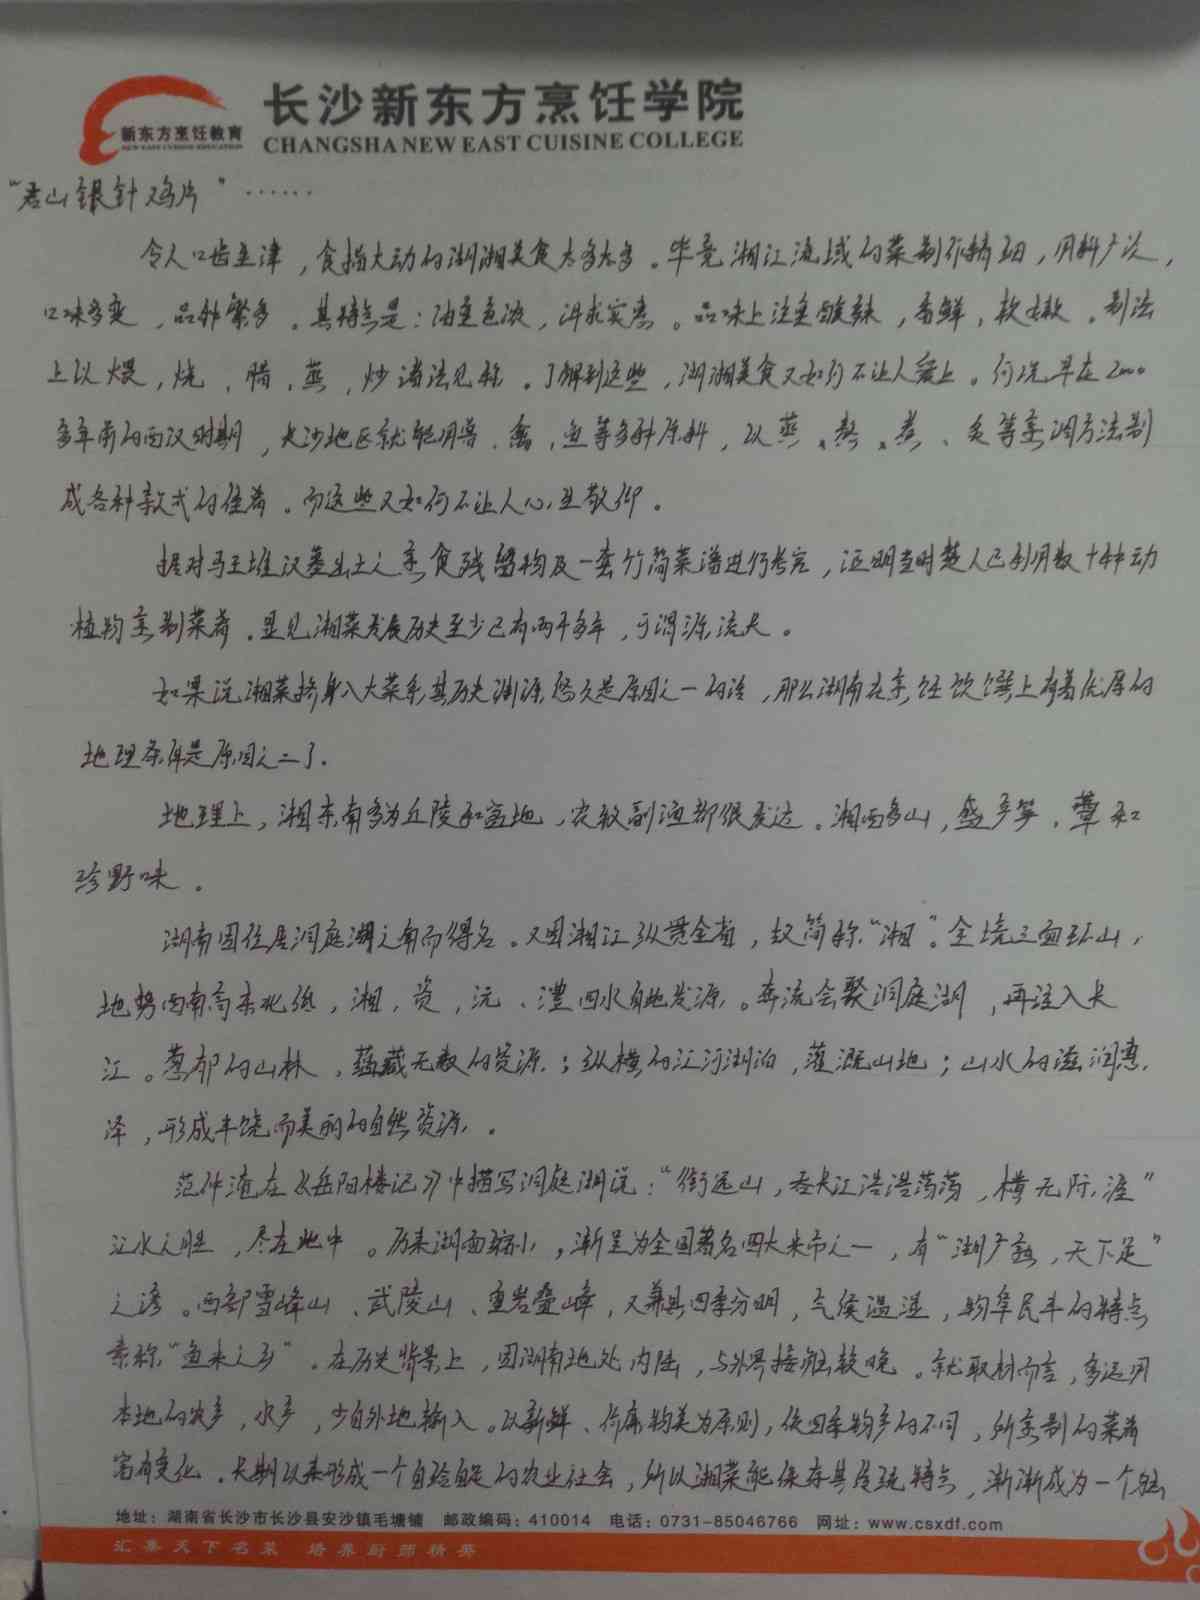 新东方烹饪教育
NEW EAST CUISINE EDUCATION
长沙新东方烹饪学院
CHANGSHA NEW EAST CUISINE COLLEGE
“君山银针鸡片”……
令人口齿生津，食指大动的湖湘美食太多太多。毕竟湘江流域的菜制作精细，用料广泛，
口味多变，品种繁多。其特点是：油重色浓，讲求实惠。品味上注重酸辣，香鲜，软嫩。制法
上以煨，烧，腊，蒸，炒诸法见称。了解到这些，湖湘美食又如何不让人爱上。何况早在2000
多年前的西汉时期，长沙地区就能用兽、禽，鱼等多种原料，以蒸、熬、煮、炙等烹调方法制
成各种款式的佳肴。而这些又如何不让人心生敬仰。
据对马王堆汉墓出土之烹食残留物及一套竹简菜谱进行考究，证明当时楚人已利用数十种动
植物烹制菜肴。显见湘菜发展历史至少已有两千多年，可谓源流长。
如果说湘菜挤身八大菜系其历史渊源悠久是原因之一的话，那么湖南在烹饪饮馔上有着优厚的
地理条件是原因之二了.
地理上，湘东南多为丘陵和盆地，农牧副渔都很发达。湘西多山，盛产笋、蕈和
珍野味。
湖南因位居洞庭湖之南而得名。又因湘江纵贯全省，故简称“湘”。全境三面环山，
地势西南高东北低，湘，资，沅、澧四水自地发源。奔流会聚洞庭湖，再注入长
江。葱郁的山林，蕴藏无数的资源；纵横的江河湖泊，灌溉山地；山水的滋润惠
泽，形成丰饶而美丽的自然资源。
范仲淹在《岳阳楼记》中描写洞庭湖说：“衔远山，吞长江浩浩荡荡，横无际涯”
江水之胜，尽在此中。历来湖面缩小，渐呈为全国著名四大米市之一，有“湖广熟，天下足”
之谚。西部雪峰山、武陵山、重岩叠峰，又兼具四季分明，气候温湿，物阜民丰的特点
素称“鱼米之乡”。在历史背景上，因湖南地处内陆，与外界接触较晚。就取材而言，多运用
本地的农产，水产，少自外地输入。以新鲜、价廉物美为原则，依四季物产的不同，所烹制的菜肴
富有变化。长期以来形成一个自给自足的农业社会，所以湘菜能保存其传统特点，渐渐成为一个独
地址：湖南省长沙市长沙县安沙镇毛塘铺 邮政编码：410014 电话：0731-85046766 网址：www.csxdf.com
汇集天下名菜 培养厨师精英